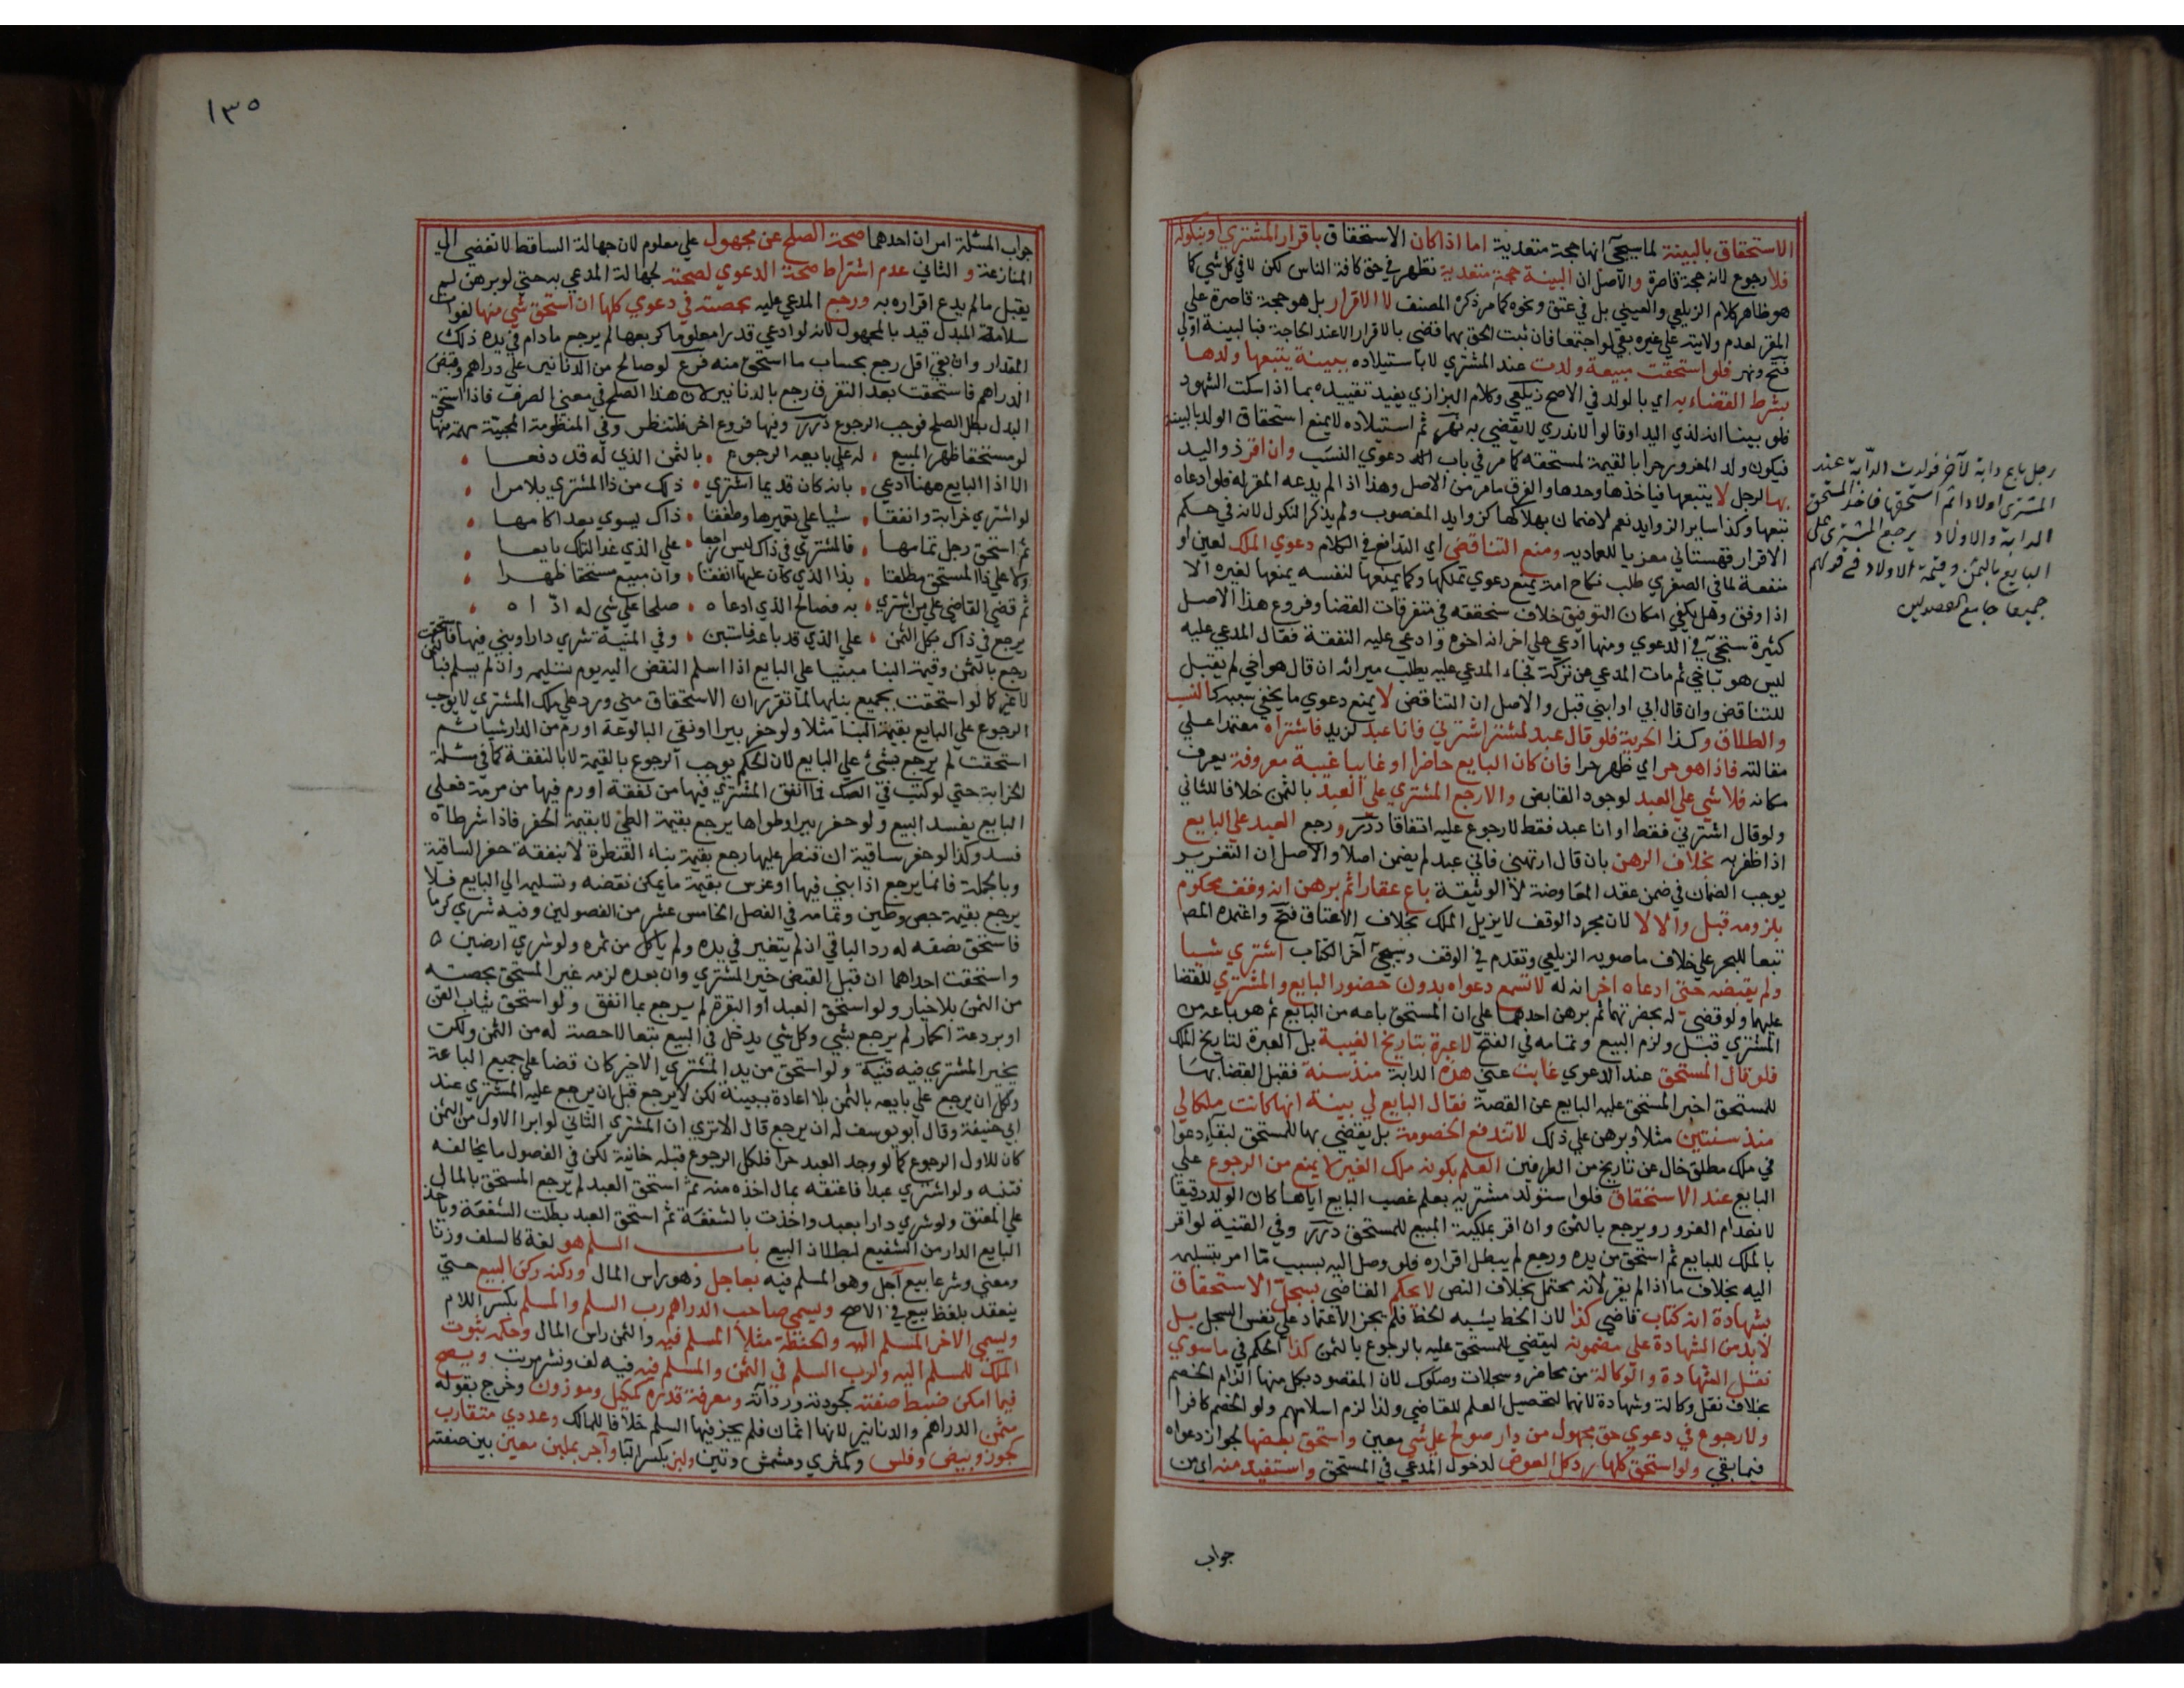 الاستحقاق بالبينة لما سيجئ انها حجة متعدية اما اذا كان الاستحقاق باقرار المشتري او بنكوله
فلا رجوع لانه حجة قاصرة والاصل ان البينة حجة متعدية تظهر في حق كافة الناس لكن لا في كل شي كما
هو ظاهر كلام الزيلعي والعيني بل في عتق ونحوه كما مر ذكره المصنف لا الاقرار بل هو حجة قاصرة علي
المقر لعدم ولايته علي غيره بقي لو اجتمعا فان ثبت الحق بهما قضي بالاقرار الا عند الحاجة فبالبينة اولي
فتح ونهر فلو استحقت مبيعة ولدت عند المشتري لا باستيلاده ببينة يتبعها ولدها
بشرط القضاء به اي بالولد في الاصح زيلعي وكلام البزازي يفيد تقييده بما اذا سكت الشهود
فلو بينا انه لذي اليد او قالوا لا ندري لا يقضي به نهر ثم استيلاده لا يمنع استحقاق الولد بالبينة
فيكون ولد المغرور حرا بالقيمة لمستحقه كما مر في باب دعوي النسب وان اقر ذو اليد
بها لرجل لا يتبعها فياخذها وحدها والفرق ما مر من الاصل وهذا اذا لم يدعه المقر له فلو ادعاه
تبعها وكذا سائر الزوايد نعم لا ضمان بهلاكها كزوايد المغصوب ولم يذكر النكول لانه في حكم
الاقرار قهستاني معزيا للعماديه ومنع التناقض اي التدافع في الكلام دعوي الملك لعين او
منفعة لما في الصغري طلب نكاح امة يمنع دعوي تملكها وكما يمنعها لنفسه يمنعها لغيره الا
اذا وفق وهل يكفي امكان التوفيق خلاف سنحققه في متفرقات القضا وفروع هذا الاصل
كثيرة ستجئ في الدعوي ومنها ادعي علي اخر انه اخوه وادعي عليه النفقة فقال المدعي عليه
ليس هو باخي ثم مات المدعي عن تركة فجاء المدعي عليه يطلب ميراثه ان قال هو اخي لم يقبل
للتناقض وان قال ابي او ابني قبل والاصل ان التناقض لا يمنع دعوي ما يخفي سببه كالنسب
والطلاق وكذا الحرية فلو قال عبد لمشتر اشترني فانا عبد لزيد فاشتراه معتمدا علي
مقالته فاذا هو حر اي ظهر حرا فان كان البايع حاضرا او غايبا غيبة معروفة يعرف
مكانه فلا شي علي العبد لوجود القابض والا رجع المشتري علي العبد بالثمن خلافا للثاني
ولو قال اشترني فقط او انا عبد فقط لا رجوع عليه اتفاقا درر ورجع العبد علي البايع
اذا ظفر به بخلاف الرهن بان قال ارتهني فاني عبد لم يضمن اصلا والاصل ان التغرير
يوجب الضمان في ضمن عقد المعاوضة لا الوثيقة باع عقارا ثم برهن انه وقف محكوم
بلزومه قبل والا لا لان مجرد الوقف لا يزيل الملك بخلاف الاعتاق فتح واعتمده المص
تبعا للبحر علي خلاف ما صوبه الزيلعي وتقدم في الوقف وسيجئ آخر الكتاب اشتري شيا
ولم يقبضه حتي ادعاه اخر انه له لا تسمع دعواه بدون حضور البايع والمشتري للقضا
عليهما ولو قضي له بحضرتهما ثم برهن احدهما علي ان المستحق باعه من البايع ثم هو باعه من
المشتري قبل ولزم البيع وتمامه في الفتح لا عبرة بتاريخ الغيبة بل العبرة لتاريخ الملك
فلو قال المستحق عند الدعوي غابت عني هذه الدابة منذ سنة فقبل القضا بها
للمستحق اخبر المستحق عليه البايع عن القصة فقال البايع لي بينة انها كانت ملكا لي
منذ سنتين مثلا وبرهن علي ذلك لا تندفع الخصومة بل يقضي بها للمستحق لبقاء دعواه
في ملك مطلق خال عن تاريخ من الطرفين العلم بكونه ملك الغير لا يمنع من الرجوع علي
البايع عند الاستحقاق فلو استولد مشتريه يعلم غصب البايع اياها كان الولد رقيقا
لانعدام الغرور ويرجع بالثمن وان اقر بملكية المبيع للمستحق درر وفي القنية لو اقر
بالملك للبايع ثم استحق من يده ورجع لم يبطل اقراره فلو وصل اليه بسبب ما امر بتسليمه
اليه بخلاف ما اذا لم يقر لانه محتمل بخلاف النص لا يحكم القاضي بسجل الاستحقاق
بشهادة انه كتاب قاضي كذا لان الخط يشبه الخط فلم يجز الاعتماد علي نفس السجل بل
لا بد من الشهادة علي مضمونه ليقضي للمستحق عليه بالرجوع بالثمن كذا الحكم في ما سوي
نقل الشهادة والوكالة من محاضر وسجلات وصكوك لان المقصود بكل منها الزام الخصم
بخلاف نقل وكالة وشهادة لانهما لتحصيل العلم للقاضي ولذا لزم اسلامهم ولو الخصم كافرا
ولا رجوع في دعوي حق مجهول من دار صولح علي شي معين واستحق بعضها لجواز دعواه
فيما بقي ولو استحق كلها رد كل العوض لدخول المدعي في المستحق واستفيد منه اي من
جواب
رجل باع دابة لآخر فولدت الدابة عند
المشتري اولادا ثم استحقها فاخذ المستحق
الدابة والاولاد يرجع المشتري علي
البايع بالثمن وقيمة الاولاد في قولهم
جميعا جامع الفصولين
١٣٥
جواب المسئلة امران احدهما صحة الصلح عن مجهول علي معلوم لان جهالة الساقط لا تفضي الي
المنازعة والثاني عدم اشتراط صحة الدعوي لصحته لجهالة المدعي به حتي لو برهن لم
يقبل ما لم يدع اقراره به ورجع المدعي عليه بحصته في دعوي كلها ان استحق شي منها لفوات
سلامة المبدل قيد بالمجهول لانه لو ادعي قدرا معلوما كربعها لم يرجع ما دام في يده ذلك
المقدار وان بقي اقل رجع بحساب ما استحق منه فرع لو صالح من الدنانير علي دراهم وقبض
الدراهم فاستحقت بعد التفرق رجع بالدنانير لان هذا الصلح في معني الصرف فاذا استحق
البدل بطل الصلح فوجب الرجوع درر وفيها فروع اخر فلتنظر وفي المنظومة المحبية مهمة منها
لو مستحقا ظهر المبيع . له علي بايعه الرجوع . بالثمن الذي له قد دفعا .
الا اذا البايع ههنا ادعي . بانه كان قديما اشتري . ذلك من ذا المشتري بلا مرا .
لو اشتري خرابة وانفقا . شيا علي تعميرها وطفقا . ذاك يسوي بعدا كامها .
ثم استحق رجل تمامها . فالمشتري في ذاك ليس راجعا . علي الذي غدا لتلك بايعا .
ولا علي ذا المستحق مطلقا . بذا الذي كان عليها انفقا . وان مبيع مستحقا ظهرا .
ثم قضي القاضي علي من اشتري . به فصالح الذي ادعاه . صلحا علي شي له اداه .
يرجع في ذاك بكل الثمن . علي الذي قد باعه فاستبن . وفي المنية شري دارا وبني فيها فاستحقت
رجع بالثمن وقيمة البنا مبنيا علي البايع اذا اسلم النقض اليه يوم تسليمه وان لم يسلم فبالثمن
لا غير كما لو استحقت بجميع بنايها لما تقرر ان الاستحقاق متي ورد علي ملك المشتري لا يوجب
الرجوع علي البايع بقيمة البنا مثلا ولو حفر بيرا او نقي البالوعة او رم من الدار شيا ثم
استحقت لم يرجع بشئ علي البايع لان الحكم يوجب الرجوع بالقيمة لا بالنفقة كما في مسئلة
الخرابة حتي لو كتب في الصك فما انفق المشتري فيها من نفقة او رم فيها من مرمة فعلي
البايع يفسد البيع ولو حفر بيرا وطواها يرجع بقيمة الطي لا بقيمة الحفر فاذا شرطاه
فسد وكذا لو حفر ساقية ان قنطر عليها رجع بقيمة بناء القنطرة لا بنفقة حفر الساقية
وبالجملة فانما يرجع اذا بني فيها او غرس بقيمة ما يمكن نقضه وتسليمه الي البايع فلا
يرجع بقيمة جص وطين وتمامه في الفصل الخامس عشر من الفصولين وفيه شري كرما
فاستحق نصفه له رد الباقي ان لم يتغير في يده ولم ياكل من ثمره ولو شري ارضين
واستحقت احداهما ان قبل القبض خير المشتري وان بعده لزمه غير المستحق بحصته
من الثمن بلا خيار ولو استحق العبد او البقرة لم يرجع بما انفق ولو استحق ثياب القن
او بردعة الحمار لم يرجع بشي وكل شي يدخل في البيع تبعا لا حصة له من الثمن ولكن
يخير المشتري فيه قنية ولو استحق من يد المشتري الاخير كان قضا علي جميع الباعة
ولكل ان يرجع علي بايعه بالثمن بلا اعادة ببينة لكن لا يرجع قبل ان يرجع عليه المشتري عند
ابي حنيفة وقال ابو يوسف له ان يرجع قال الا تري ان المشتري الثاني لو ابرا الاول من الثمن
كان للاول الرجوع كما لو وجد العبد حرا فلكل الرجوع قبله خانية لكن في الفصول ما يخالفه
فتنبه ولو اشتري عبدا فاعتقه بمال اخذه منه ثم استحق العبد لم يرجع المستحق بالمال
علي المعتق ولو شري دارا بعبد واخذت بالشفعة ثم استحق العبد بطلت الشفعة وياخذ
البايع الدار من الشفيع لبطلان البيع باب السلم هو لغة كالسلف وزنا
ومعني وشرعا بيع آجل وهو المسلم فيه بعاجل وهو راس المال وركنه ركن البيع حتي
ينعقد بلفظ بيع في الاصح ويسمي صاحب الدراهم رب السلم والمسلم بكسر اللام
ويسمي الاخر المسلم اليه والحنطة مثلا المسلم فيه والثمن راس المال وحكمه ثبوت
الملك للمسلم اليه ولرب السلم في الثمن والمسلم فيه فيه لف ونشر مرتب ويصح
فيما امكن ضبط صفته كجودته ورداءته ومعرفة قدره كمكيل وموزون وخرج بقوله
مثمن الدراهم والدنانير لانها اثمان فلم يجز فيها السلم خلافا لمالك وعددي متقارب
كجوز وبيض وفلس وكمثري ومشمش وتين ولبن بكسر البا وآجر بملبن معين بين صفته